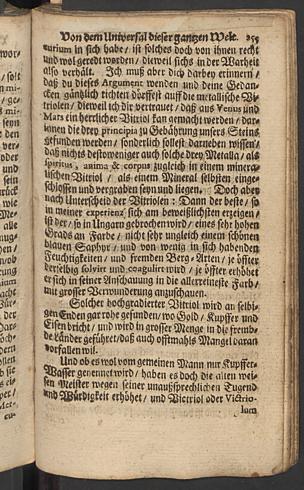 Von dem Universal dieser gantzen Welt. 259
curium in sich habe / ist solches doch von ihnen recht
und wol geredt worden / dieweil sichs in der Warheit
also verhält. Ich muß aber dich darbey erinnern /
daß du dieses Argument wenden und deine Gedan-
cken gäntzlich richten dürffest auff die metallische Vi-
triolen / dieweil ich dir vertrauet / daß aus Venus und
Mars ein herrlicher Vitriol kan gemacht werden / dar-
innen die drey principia zu Gebährung unsers Steins
gefunden werden / sonderlich sollest darneben wissen /
daß nichts destoweniger auch solche drey Metalla / als
spiritus, anima & corpus zugleich in einem minerali-
schen Vitriol / als einem Mineral selbsten / einge-
schlossen und vergraben seyn und liegen. Doch aber
nach Unterscheid der Vitriolen: Dann der beste / so
in meiner experienz sich am beweißlichsten erzeigen /
ist der / so in Ungarn gebrochen wird / eines sehr hohen
Grads an Farbe / nicht sehr ungleich einem schönen
blauen Saphyr / und von wenig in sich habenden
Feuchtigkeiten / und fremden Berg-Arten / je öffter
derselbig solvirt und coagulirt wird / je öffter erhöhet
er sich in seiner Anschauung in die allerreineste Farb /
mit grosser Verwunderung anzuschauen.
Solcher hochgradierter Vitriol wird an selbi-
gen Enden gar rohe gefunden / wo Gold / Kupffer und
Eisen bricht / und wird in grosser Menge in die fremb-
de Länder geführet / daß auch offtmahls Mangel daran
vorfallen wil.
Und ob es wol vom gemeinen Mann nur Kupffer-
Wasser genennet wird / haben es doch die alten wei-
sen Meister wegen seiner unaußsprechlichen Tugend
und Würdigkeit erhöhet / und Vitriol oder Victrio-
lum